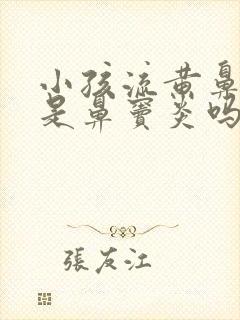 小孩流黄鼻
是鼻窦炎吗
張友江